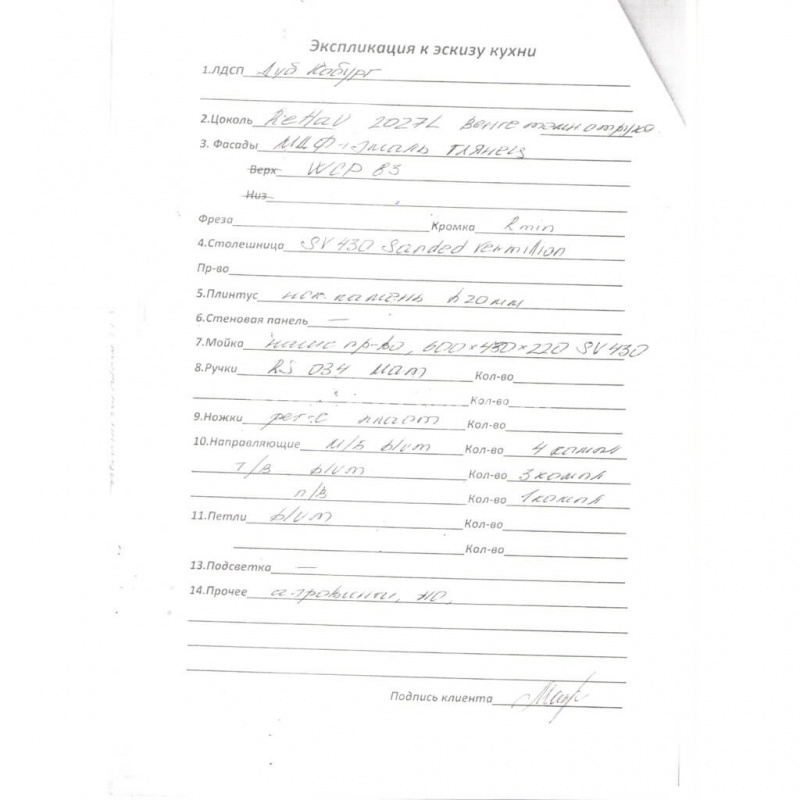 Экспликация к эскизу кухни
1.ЛДСП Дуб Кобург
2.Цоколь ReHau 2027L Венге темн отруха
3. Фасады МДФ эмаль глянец
Верх WCP 83
Низ
Фреза Кромка 2min
4.Столешница SV 430 Sanded Vermilion
Пр-во
5.Плинтус иск. камень h20мм
6.Стеновая панель —
7.Мойка наше пр-во, 600×430×220 SV 430
8.Ручки RS 034 мат Кол-во
Кол-во
9.Ножки рег-е пласт Кол-во
10.Направляющие М/Б blum Кол-во 4 компл
Т/В blum Кол-во 3 компл
п/в Кол-во 1 компл
11.Петли blum Кол-во
Кол-во
13.Подсветка —
14.Прочее
Подпись клиента